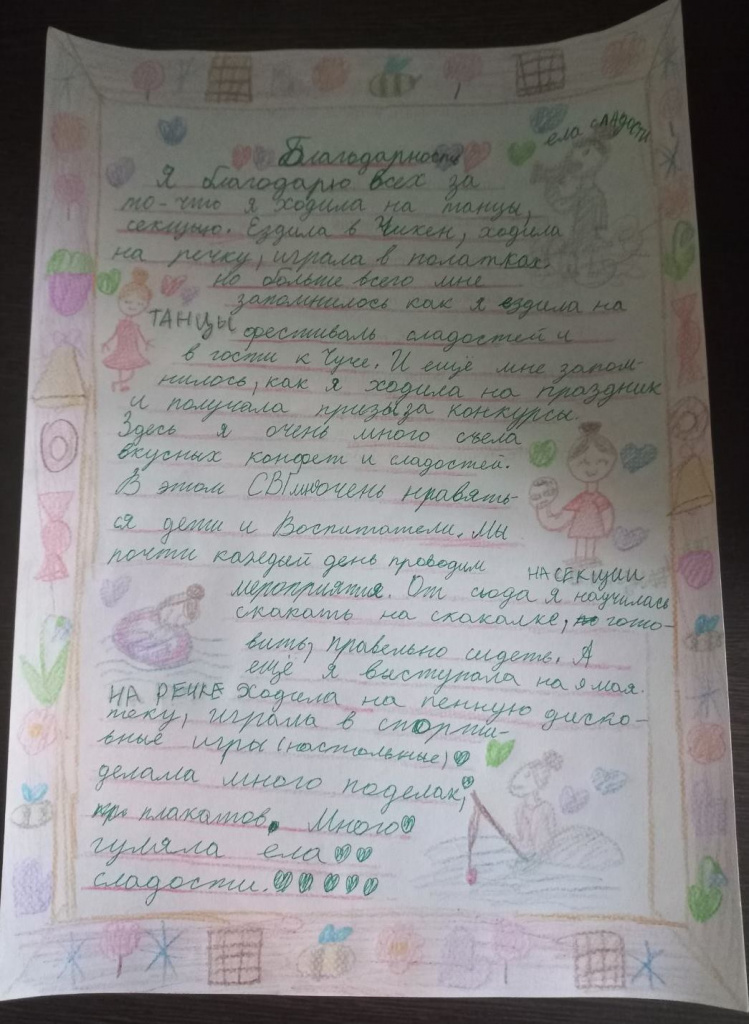 Благодарность
ела сладости
Я благодарю всех за
то-что я ходила на танцы,
секцыю. Ездила в Чикен, ходила
на речку, играла в полатках.
но больше всего мне
запомнилось как я ездила на
ТАНЦЫ
фестиваль сладостей и
в гости к Чуче. И ещё мне запом-
нилось, как я ходила на праздник
и получала призы за конкурсы.
Здесь я очень много съела
вкусных конфет и сладостей.
В этом СВГ мне очень нравять-
ся дети и Воспитатели. Мы
почти каждый день проводим
НА СЕКЦИИ
мероприятия. От сюда я научилась
скакать на скакалке, гото-
вить, правельно сидеть. А
ещё я выступала на 9 мая.
НА РЕЧКЕ
Ходила на пенную диско-
теку, играла в спорти-
вные игры (настольные)
делала много поделак,
плакатов. Много
гуляла ела
сладости.